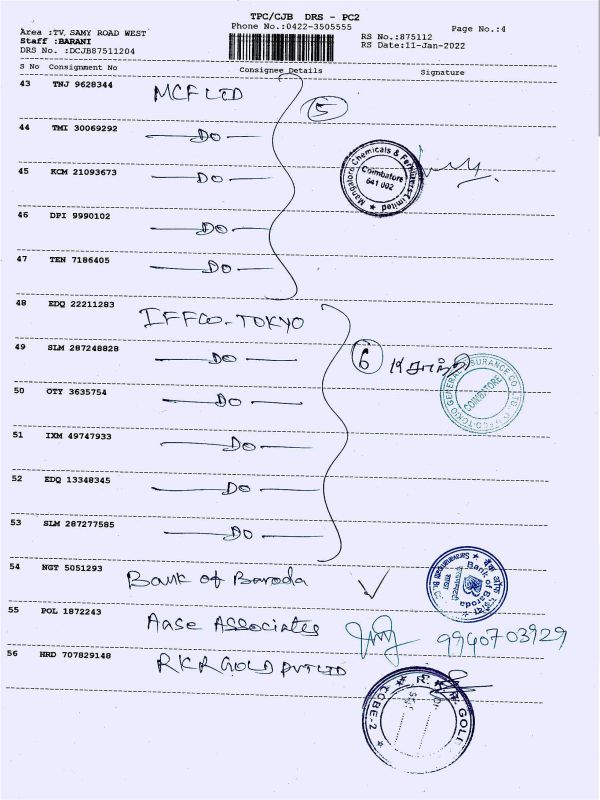 TPC/CJB DRS - PC2
Area :TV, SAMY ROAD WEST
Phone No.:0422-3505555
Page No.:4
Staff :BARANI
RS No.:875112
DRS No. :DCJB87511204
RS Date:11-Jan-2022
S No Consignment No Consignee Details Signature
43 TNJ 9628344 MCF LTD
5
44 TMI 30069292 DO
Mangalore Chemicals & Fertilizers Limited
Coimbatore
641 002
45 KCM 21093673 DO
46 DPI 9990102 DO
47 TEN 7186405 DO
48 EDQ 22211283 IFFCO-TOKYO
49 SLM 287248828 DO
6
IFFCO-TOKIO GENERAL INSURANCE CO. LTD.
COIMBATORE
50 OTY 3635754 DO
51 IXM 49747933 DO
52 EDQ 13348345 DO
53 SLM 287277585 DO
54 NGT 5051293 Bank of Baroda
Bank of Baroda
55 POL 1872243 Aase Associates 9940703929
56 HRD 707829148 RKR GOLD PVT LTD
GOLD
CBE-2